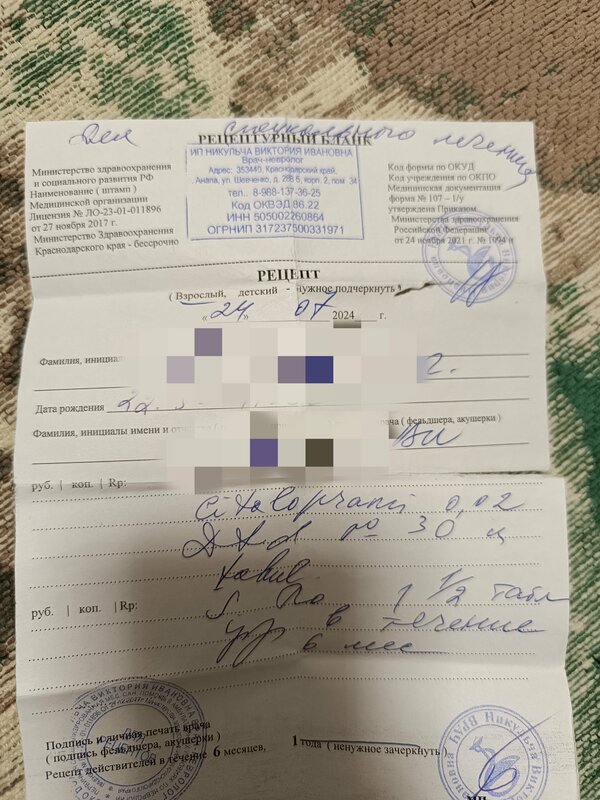 Для специального лечения
РЕЦЕПТУРНЫЙ БЛАНК
Министерство здравоохранения
и социального развития РФ
Наименование ( штамп )
Медицинской организации
Лицензия № ЛО-23-01-011896
от 27 ноября 2017 г.
Министерство Здравоохранения
Краснодарского края - бессрочно
ИП НИКУЛЬЧА ВИКТОРИЯ ИВАНОВНА
Врач-невролог
Адрес: 353440, Краснодарский край,
Анапа, ул. Шевченко, д. 288 б, корп. 2, пом. 34
тел.. 8-988-137-36-25
Код ОКВЭД 86.22
ИНН 505002260864
ОГРНИП 317237500331971
Код формы по ОКУД
Код учреждения по ОКПО
Медицинская документация
форма № 107 – 1/у
утверждена Приказом
Министерства здравоохранения
Российской Федерации
от 24 ноября 2021 г. № 1094 н
РЕЦЕПТ
( Взрослый, детский - нужное подчеркнуть )
« 24 » 07 2024 г.
Фамилия, инициа
г.
Дата рождения 22.
Фамилия, инициалы имени и о
ача ( фельдшера, акушерки )
ВИ
руб. | коп. | Rp:
Citaloprami 0,02
D.t.d № 30
tabul
руб. | коп. | Rp:
S. По 1 1/2 табл
утр в течение
6 мес
Подпись и личная печать врача
( подпись фельдшера, акушерки )
Рецепт действителен в течение 6 месяцев, 1 года ( ненужное зачеркнуть )
МП